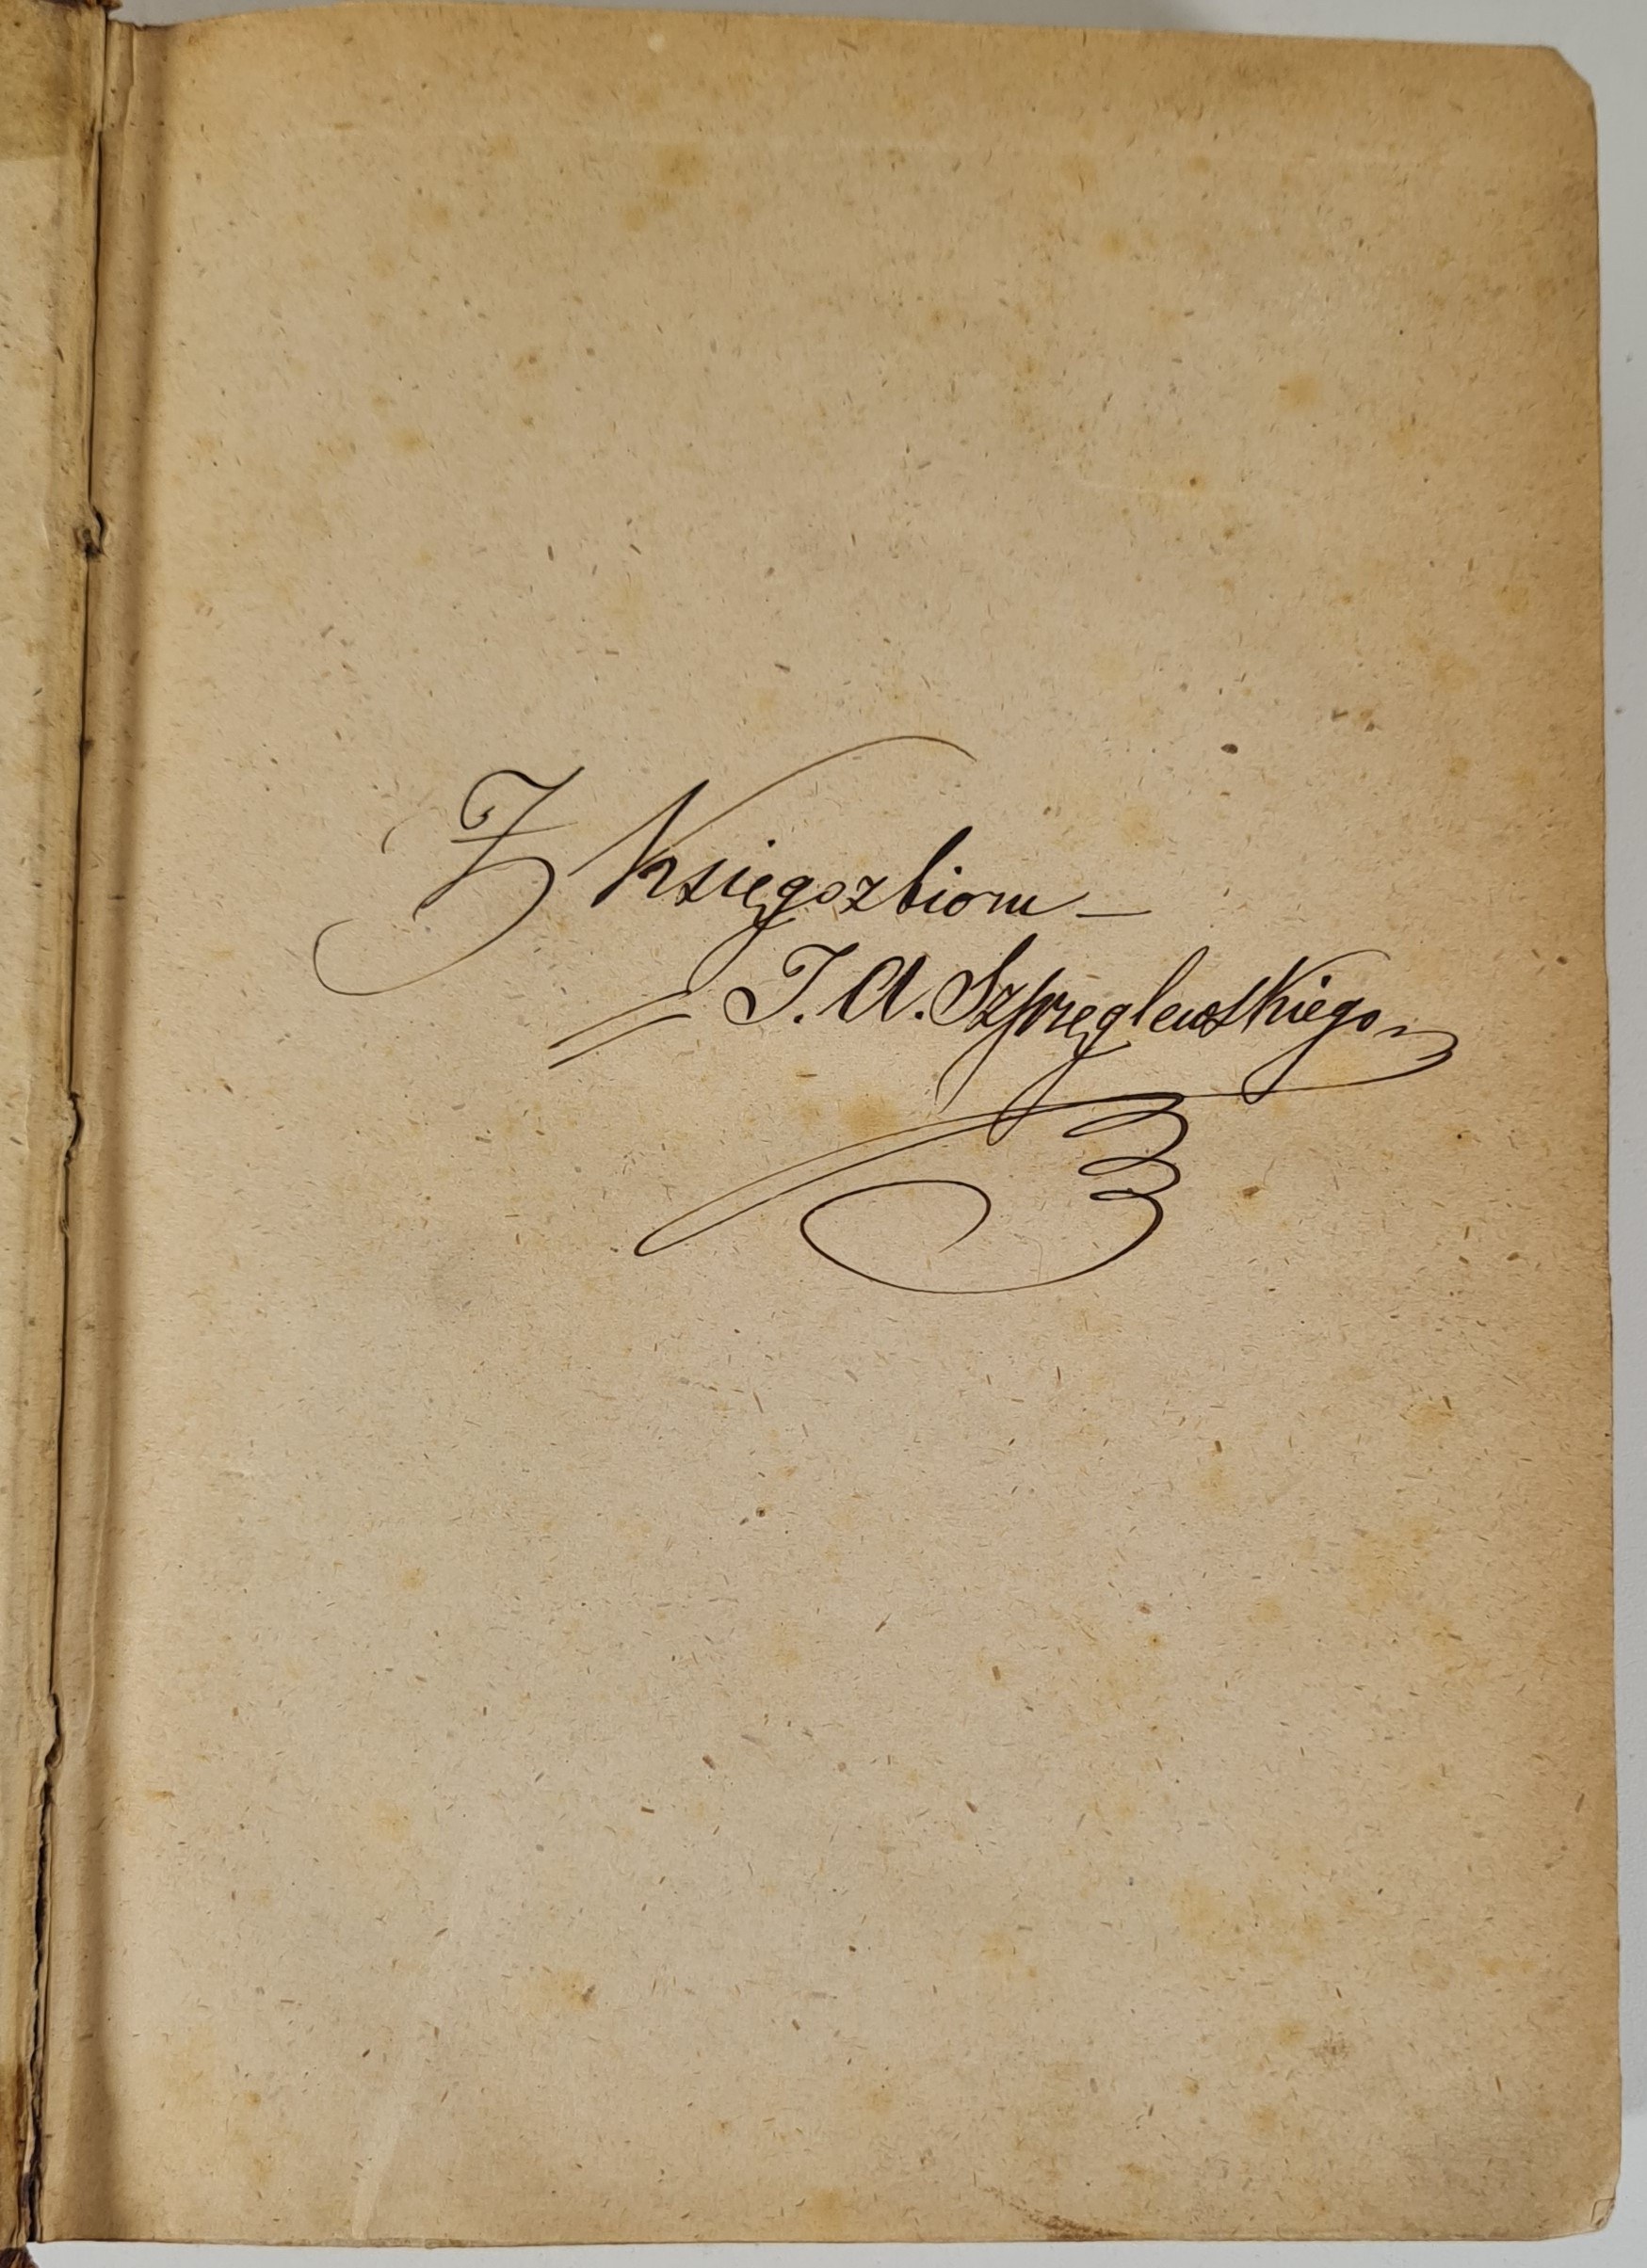 Z Księgozbioru –
J. A. Szpręglewskiego